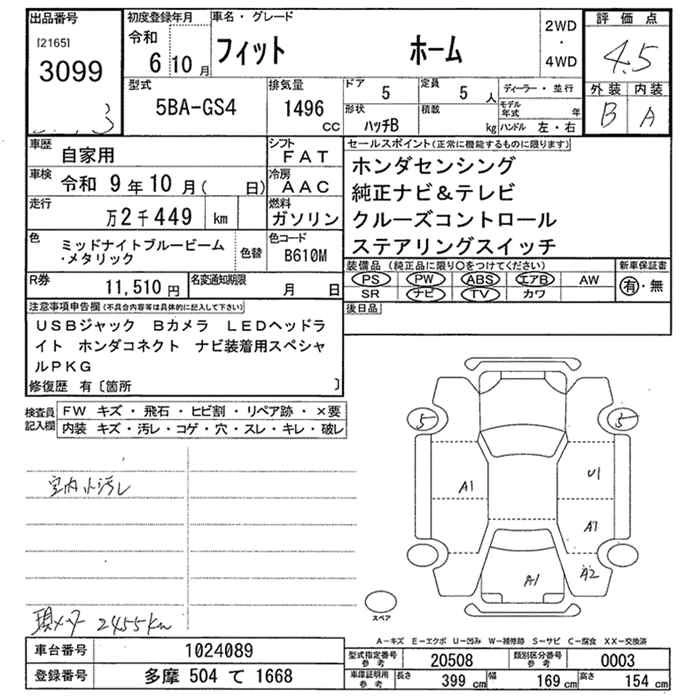 出品番号
[2165]
3099
初度登録年月
令和
6 10 月
車名・グレード
フィット ホーム
2WD
・
4WD
評価点
4.5
外装 内装
B A
型式
5BA-GS4
排気量
1496
CC
ドア
5
定員
5 人
形状
ハッチB
積数
kg
ディーラー・並行
モデル年式 年
ハンドル 左・右
車歴
自家用
シフト
FAT
車検
令和 9年10月( 日)
冷房
AAC
走行
万2千449 km
燃料
ガソリン
色
ミッドナイトブルービーム
・メタリック
色替
色コード
B610M
R券
11,510 円
名変通知期限
月 日
セールスポイント(正常に機能するものに限ります)
ホンダセンシング
純正ナビ&テレビ
クルーズコントロール
ステアリングスイッチ
装備品(純正品に限り○をつけてください)
PS PW ABS エアB AW
SR ナビ TV カワ
新車保証書
有・無
後日品
注意事項申告欄(不具合内容等は具体的に記入して下さい)
USBジャック Bカメラ LEDヘッドラ
イト ホンダコネクト ナビ装着用スペシャ
ルPKG
修復歴 有〔箇所 〕
検査員
記入欄
FW キズ・飛石・ヒビ割・リペア跡・×要
内装 キズ・汚レ・コゲ・穴・スレ・キレ・破レ
室内小汚レ
現メーター 2455km
5 5
A1 U1
A1
A1 A2
スペア
A-キズ E-エクボ U-凹み W-補修跡 S-サビ C-腐食 XX-交換済
車台番号
1024089
登録番号
多摩 504 て 1668
型式指定番号
参考
20508
類別区分番号
参考
0003
車庫証明用
参考
長さ 399 cm 幅 169 cm 高さ 154 cm